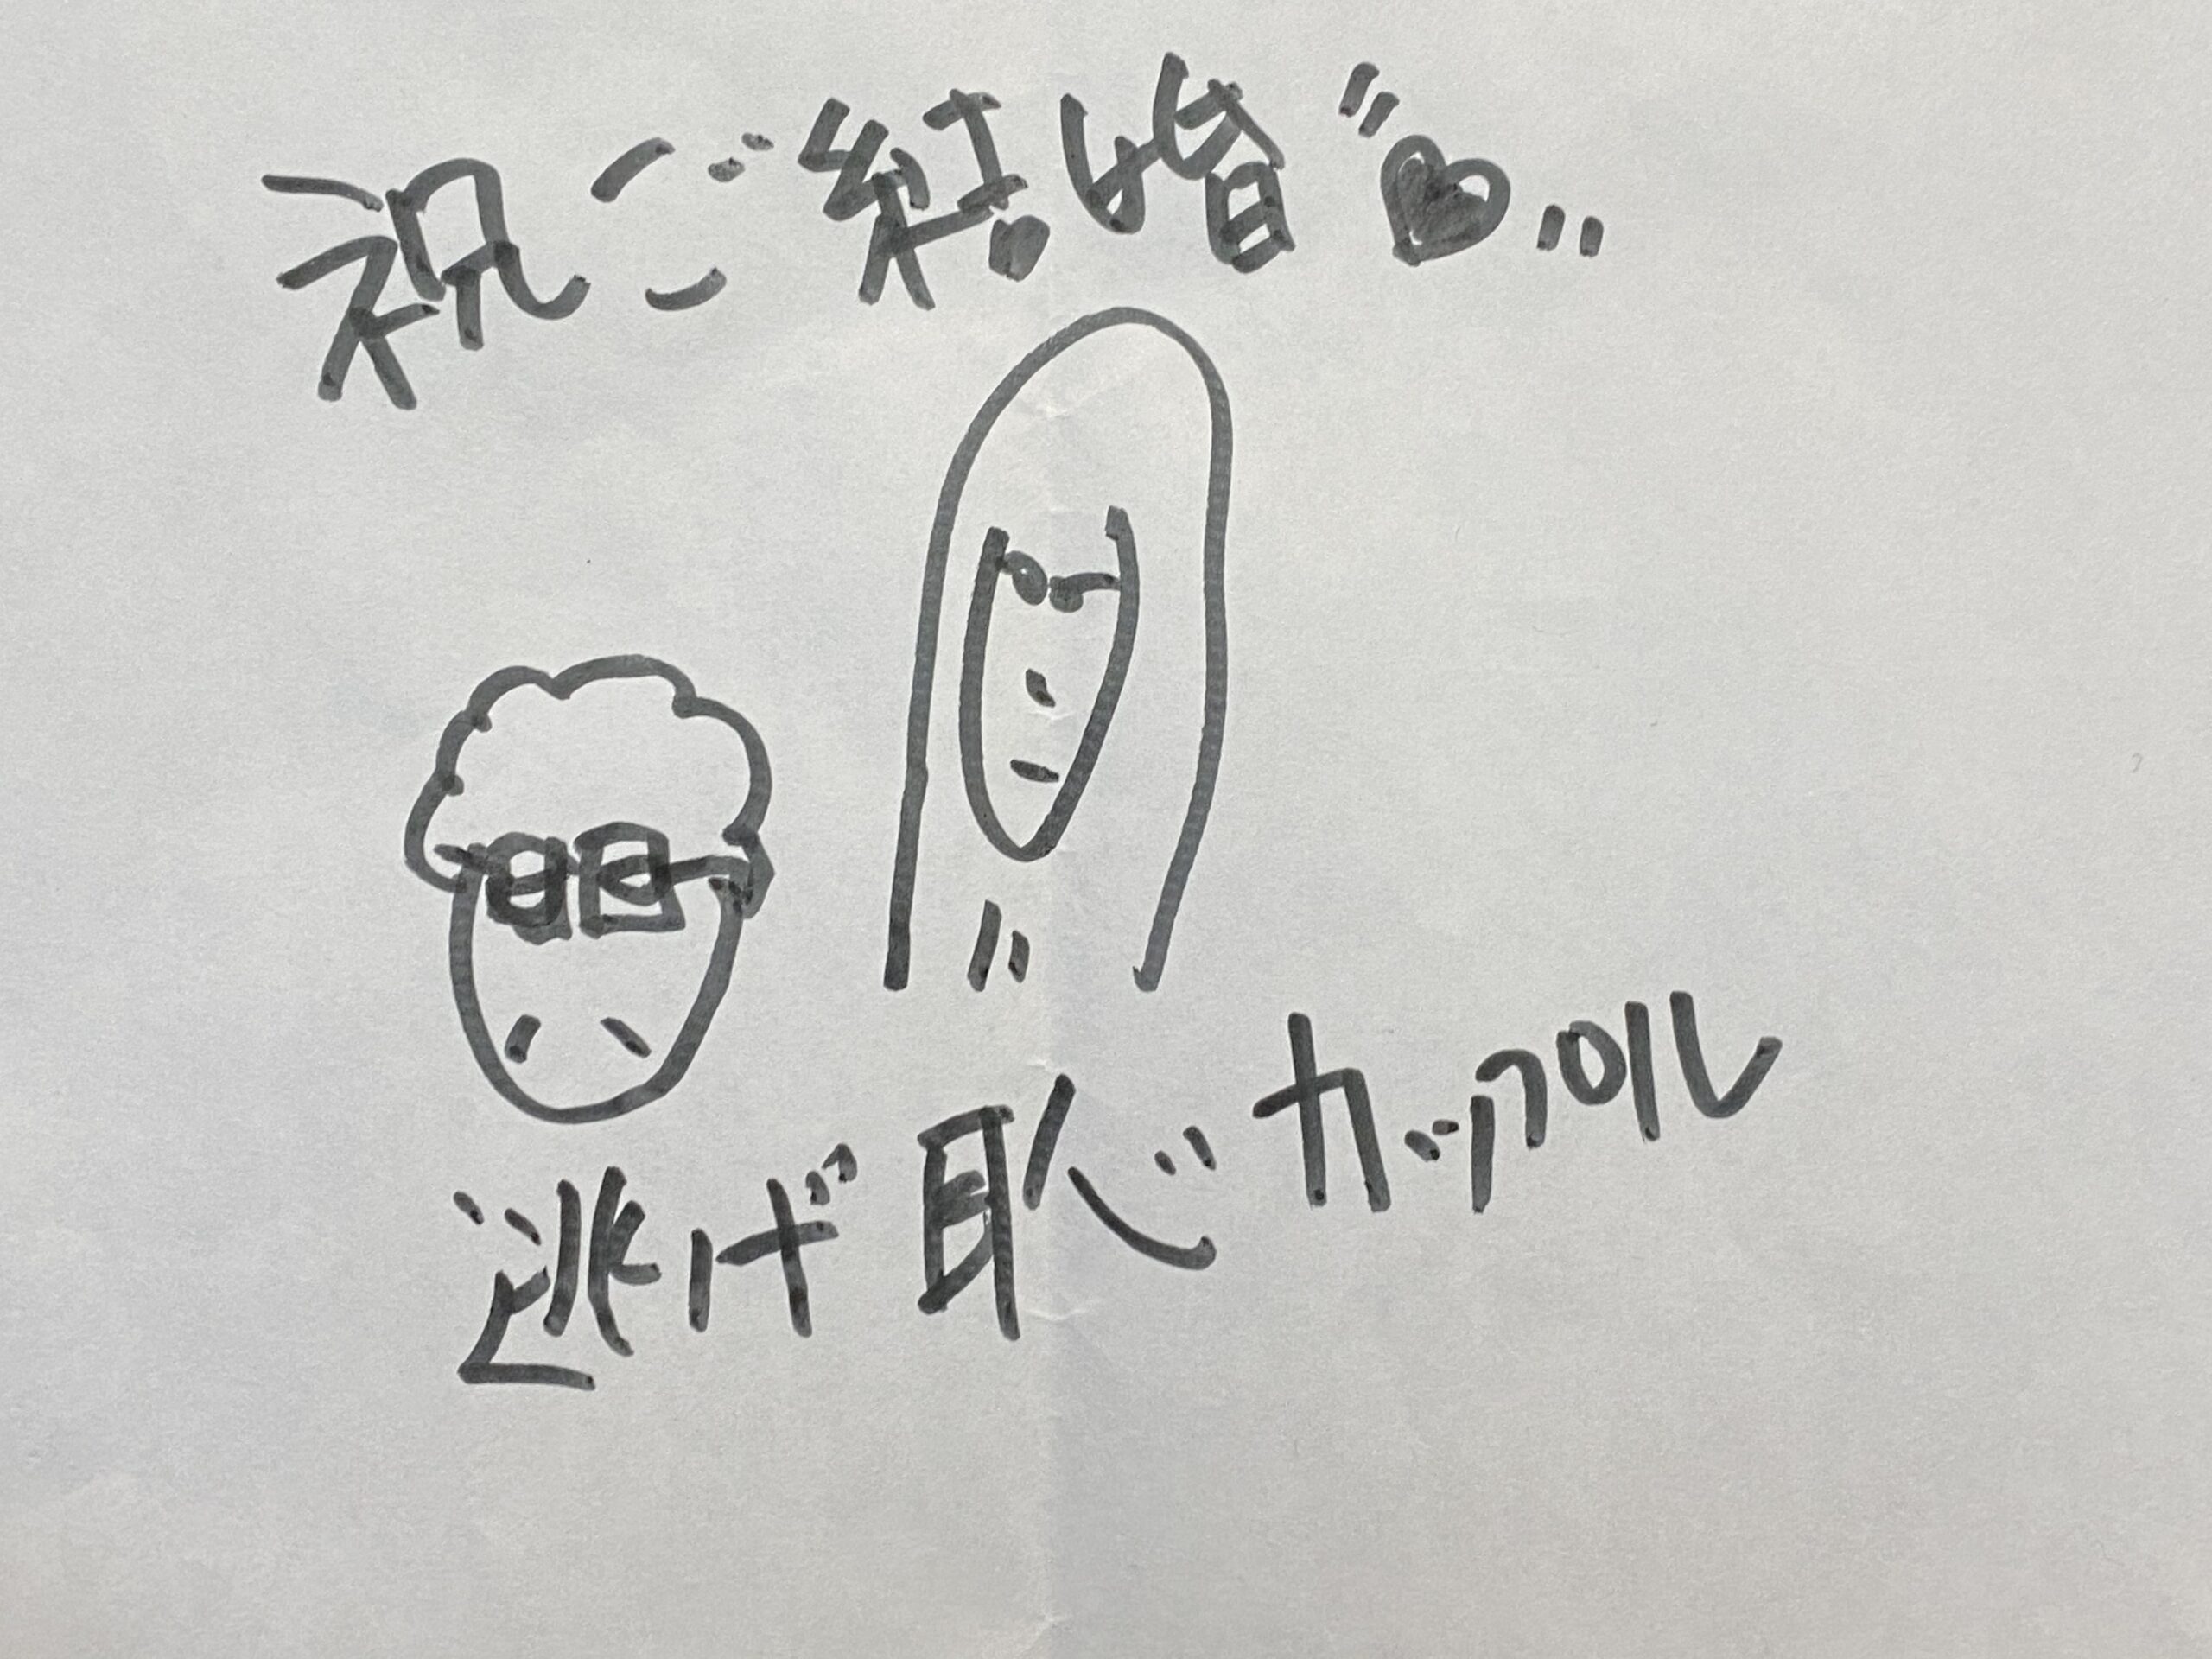 祝ご結婚♥
逃げ恥カップル